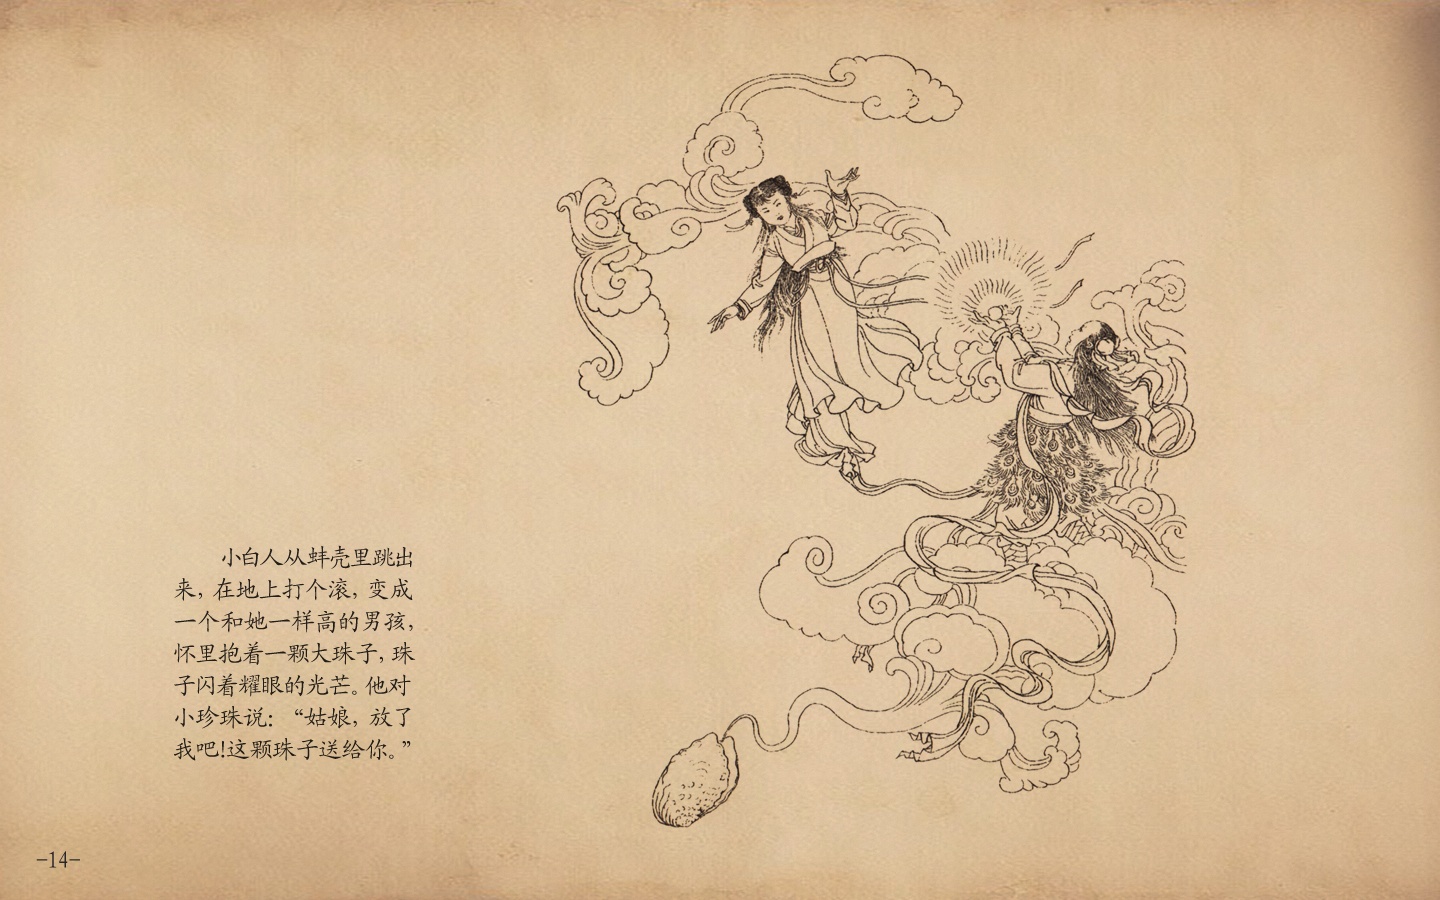 小白人从蚌壳里跳出
来，在地上打个滚，变成
一个和她一样高的男孩，
怀里抱着一颗大珠子，珠
子闪着耀眼的光芒。他对
小珍珠说：“姑娘，放了
我吧！这颗珠子送给你。”
-14-